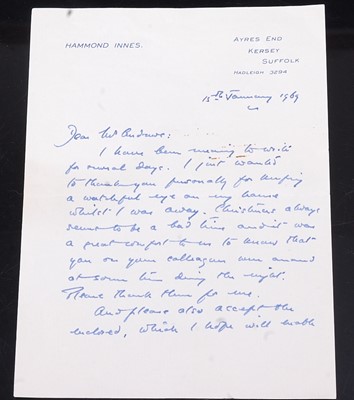 HAMMOND INNES.
AYRES END
KERSEY
SUFFOLK
HADLEIGH 3294
15th January 1969
Dear Mr Andrews:
I have been meaning to write
for several days. I just wanted
to thank you personally for keeping
a watchful eye on my house
whilst I was away. Christmas always
seems to be a bad time and it was
a great comfort to us to know that
you or your colleagues were around
at some time during the night.
Please thank them for me.
And please also accept the
enclosed, which I hope will enable